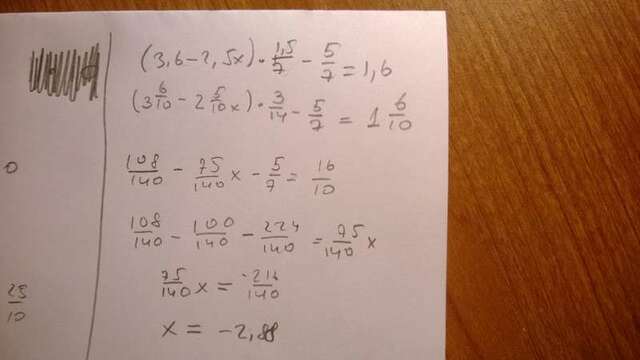 (3,6-2,5x)·1,5/7-5/7=1,6
(3 6/10-2 5/10x)·3/14-5/7=1 6/10
0
108/140-75/140x-5/7=16/10
108/140-100/140-224/140=75/140x
75/140x=-216/140
23/10
x=-2,88